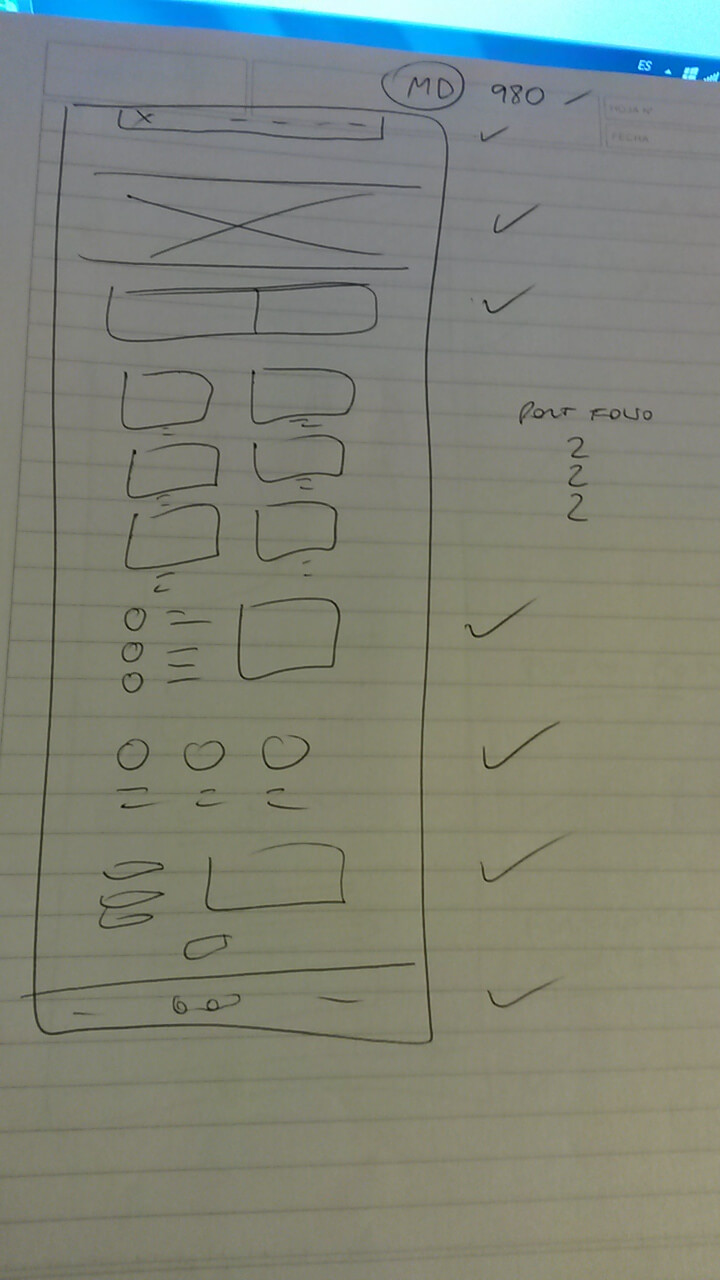 ES
MD 980
HOJA Nº
FECHA
PORTFOLIO
2
2
2